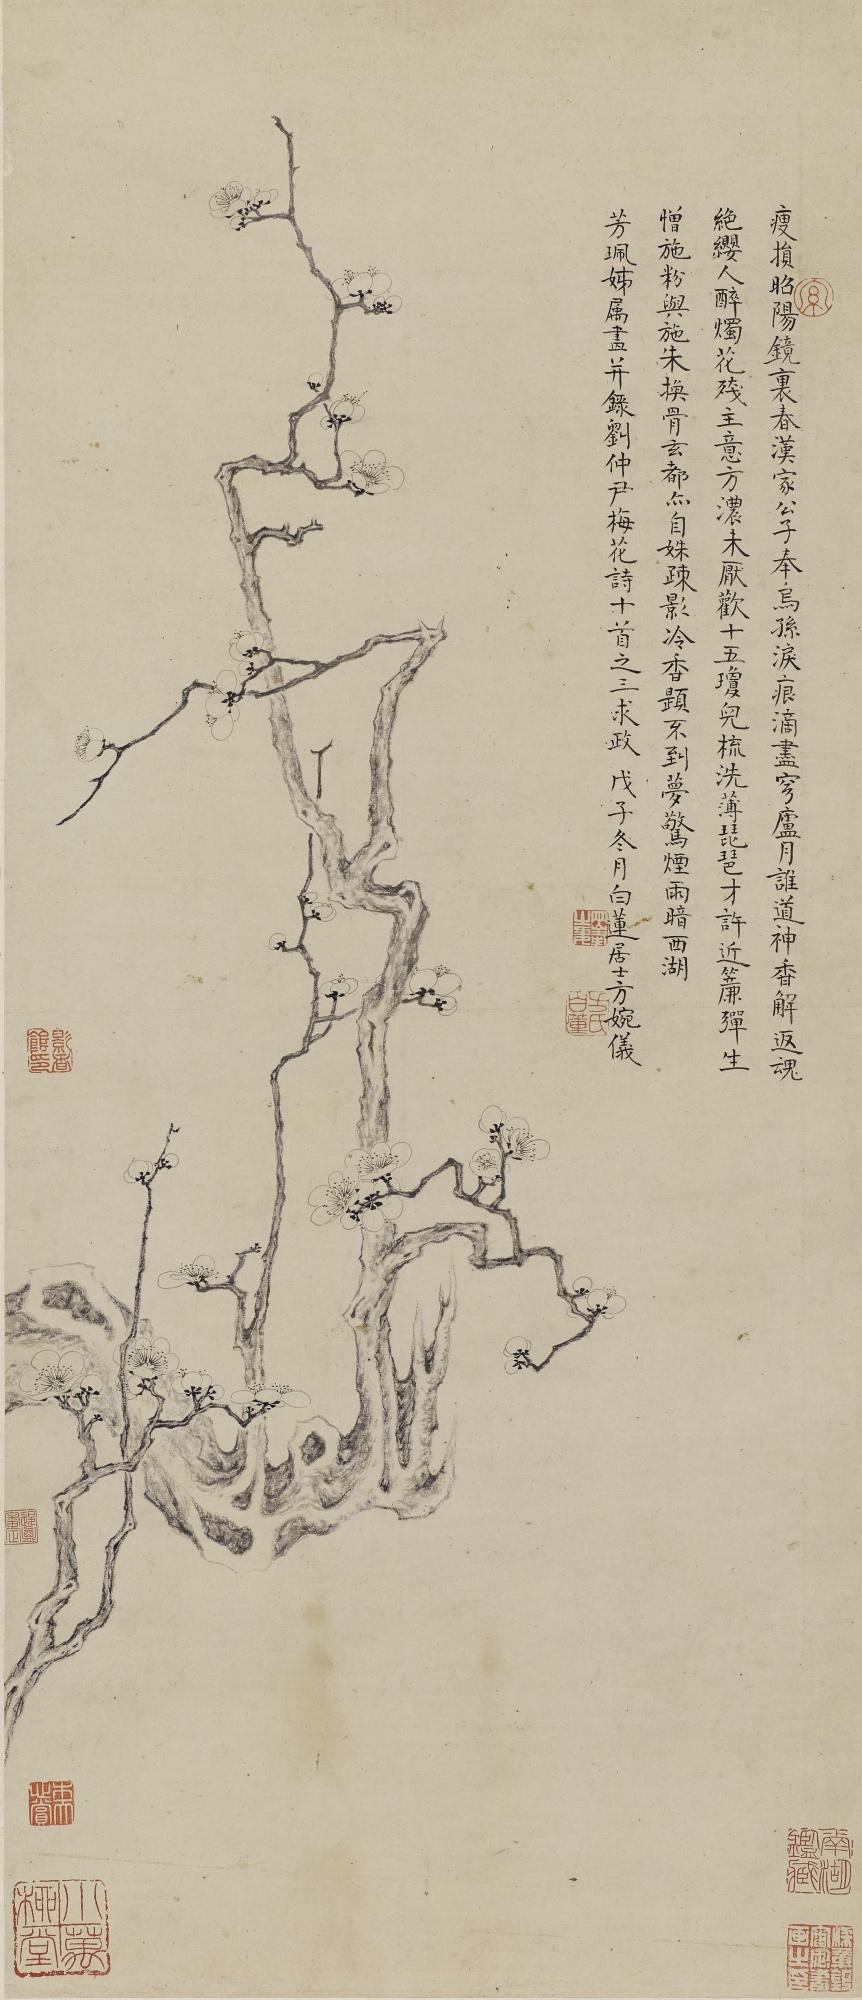 瘦損昭陽鏡裏春漢家公子奉烏孫淚痕滴盡穹廬月誰道神香解返魂
絶纓人醉燭花殘主意方濃未厭歡十五瓊兒梳洗薄琵琶才許近簾彈生
憎施粉與施朱換骨玄都尒自姝疎影冷香題不到夢驚煙雨暗西湖
芳珮姊属畫并錄劉仲尹梅花詩十首之三求政 戊子冬月白蓮居士方婉儀
方氏白蓮
南湖鑑藏